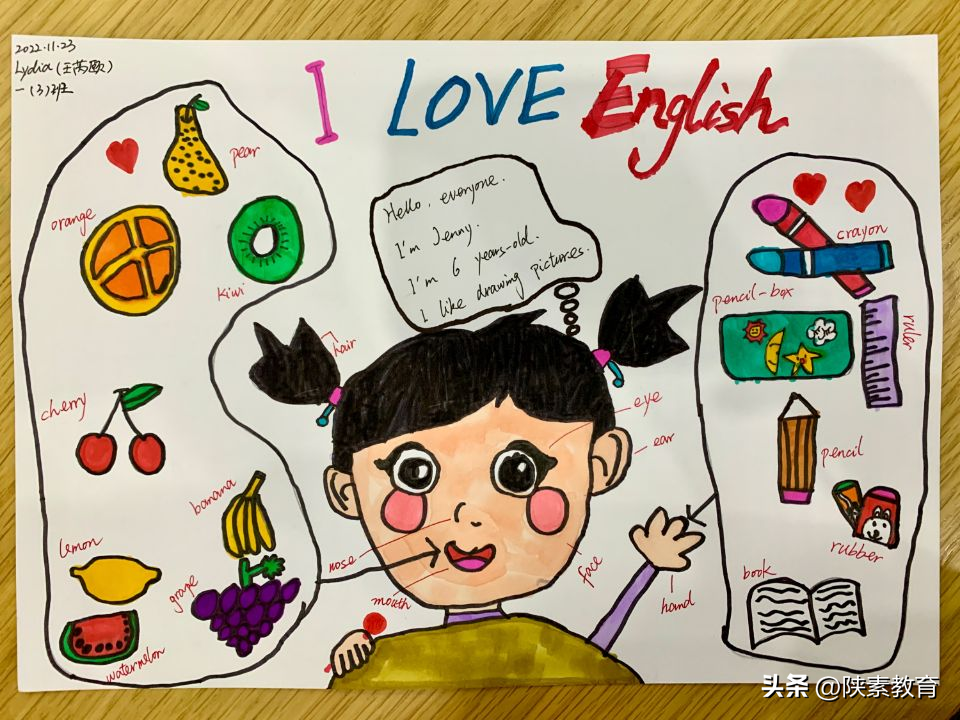 2022.11.23
Lydia (王芮欧)
一(3)班
I LOVE English
pear
orange
kiwi
cherry
banana
lemon
grape
watermelon
Hello, everyone.
I'm Jenny.
I'm 6 years-old.
I like drawing pictures.
hair
eye
ear
nose
mouth
face
hand
crayon
pencil-box
ruler
pencil
rubber
book
头条 @陕素教育